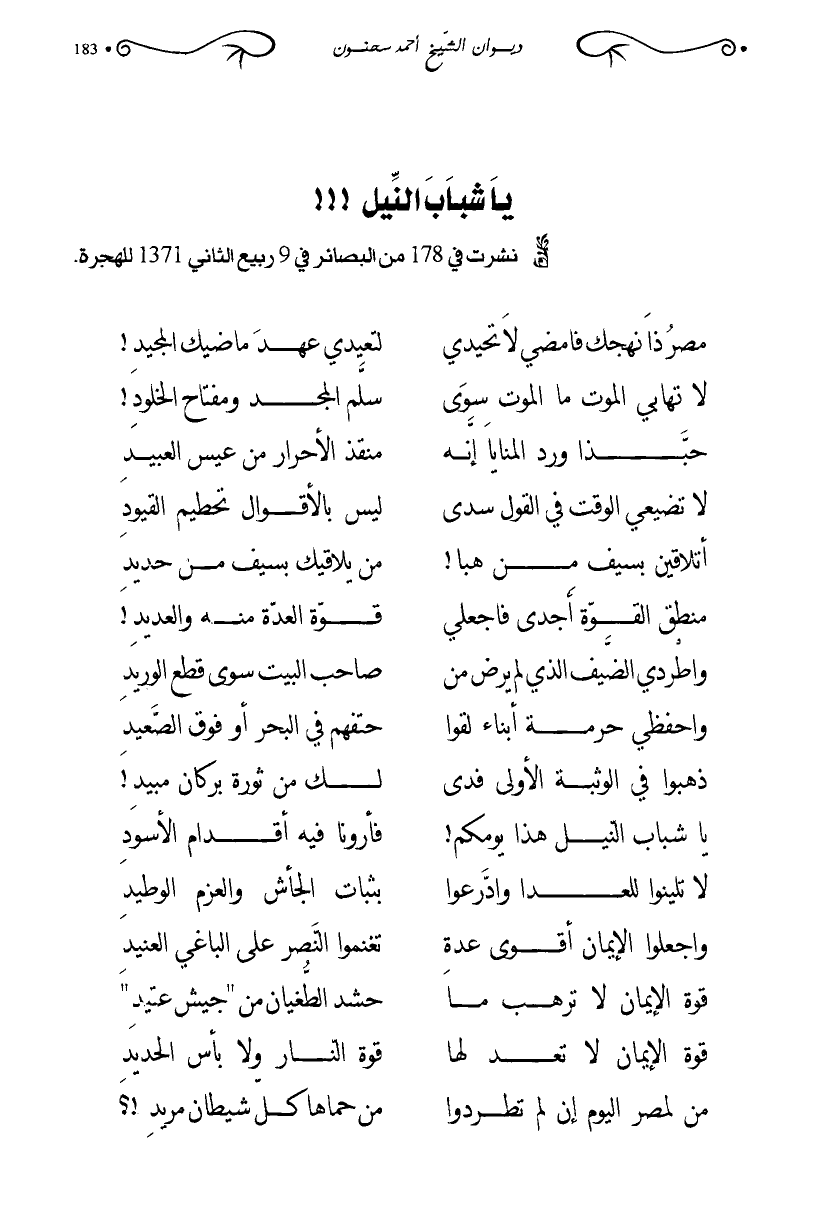 ديوان الشّيخ أحمد سحنون • 183
يَا شَبَابَ النِّيل !!!
نشرت في 178 من البصائر في 9 ربيع الثاني 1371 للهجرة.
مصرُ ذَا نهجك فامضي لاَ تحيدي لتعيدي عهدَ ماضيك المجيدِ !
لا تهابي الموت ما الموت سِوَى سلّم المجد ومفتاح الخلودِ !
حبَّذا ورد المنايا إنّه منقذ الأحرار من عيس العبيدِ
لا تضيعي الوقت في القول سدى ليس بالأقوال تحطيم القيودِ
أتلاقين بسيف من هبا ! من يلاقيك بسيف من حديدِ
منطق القوّة أجدى فاجعلي قوّة العدّة منه والعديدِ !
واطردي الضّيف الذي لم يرض من صاحب البيت سوى قطع الوريدِ
واحفظي حرمة أبناء لقوا حتفهم في البحر أو فوق الصَّعيدِ
ذهبوا في الوثبة الأولى فدى لك من ثورة بركان مبيدِ !
يا شباب النّيل هذا يومكم ! فأرونا فيه أقدام الأسودِ
لا تلينوا للعدا وادَّرعوا بثبات الجأش والعزم الوطيدِ
واجعلوا الإيمان أقوى عدة تغنموا النَّصر على الباغي العنيدِ
قوة الإيمان لا ترهب ما حشد الطُّغيان من "جيش عتيدِ"
قوة الإيمان لا تعد لها قوة النّار ولا بأس الحديدِ
من لمصر اليوم إن لم تطردوا من حماها كلّ شيطان مريدِ !؟